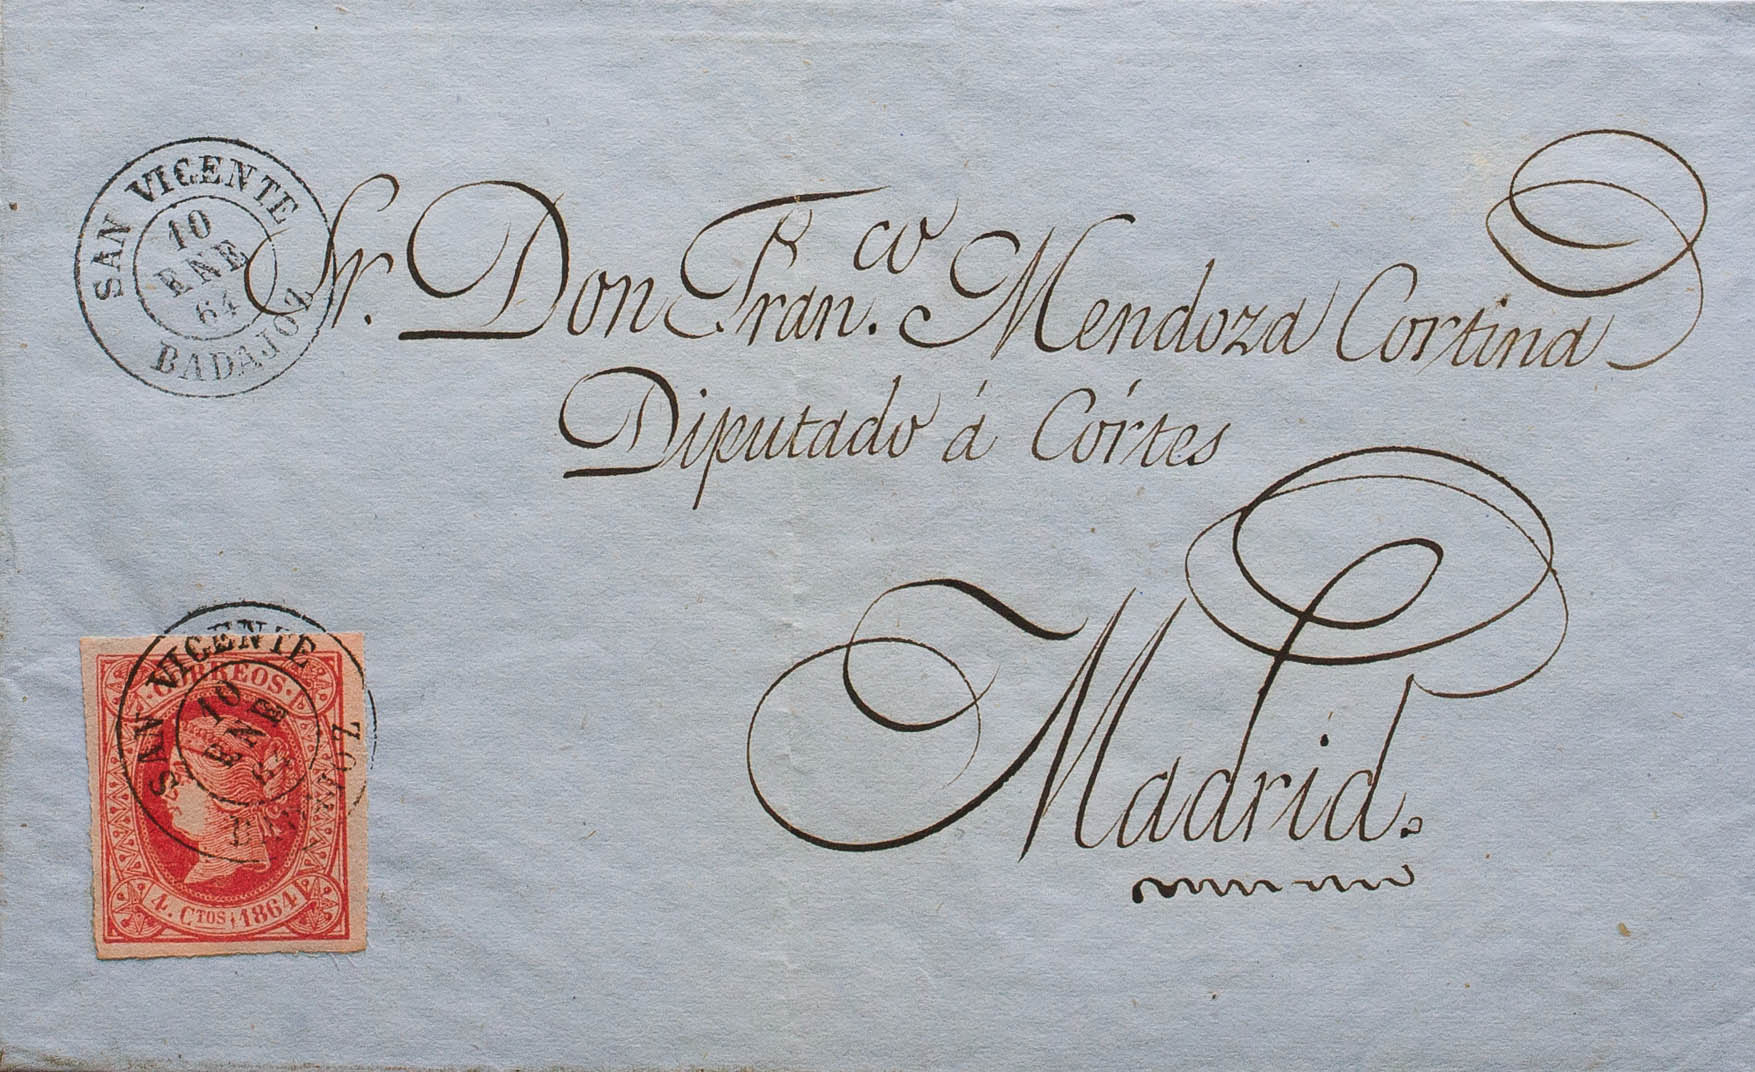 SAN VICENTE
10
ENE
64
BADAJOZ
Sr. Don Fran.co Mendoza Cortina
Diputado á Córtes
Madrid.
SAN VICENTE
10
ENE
CORREOS
4. CTOS 1864